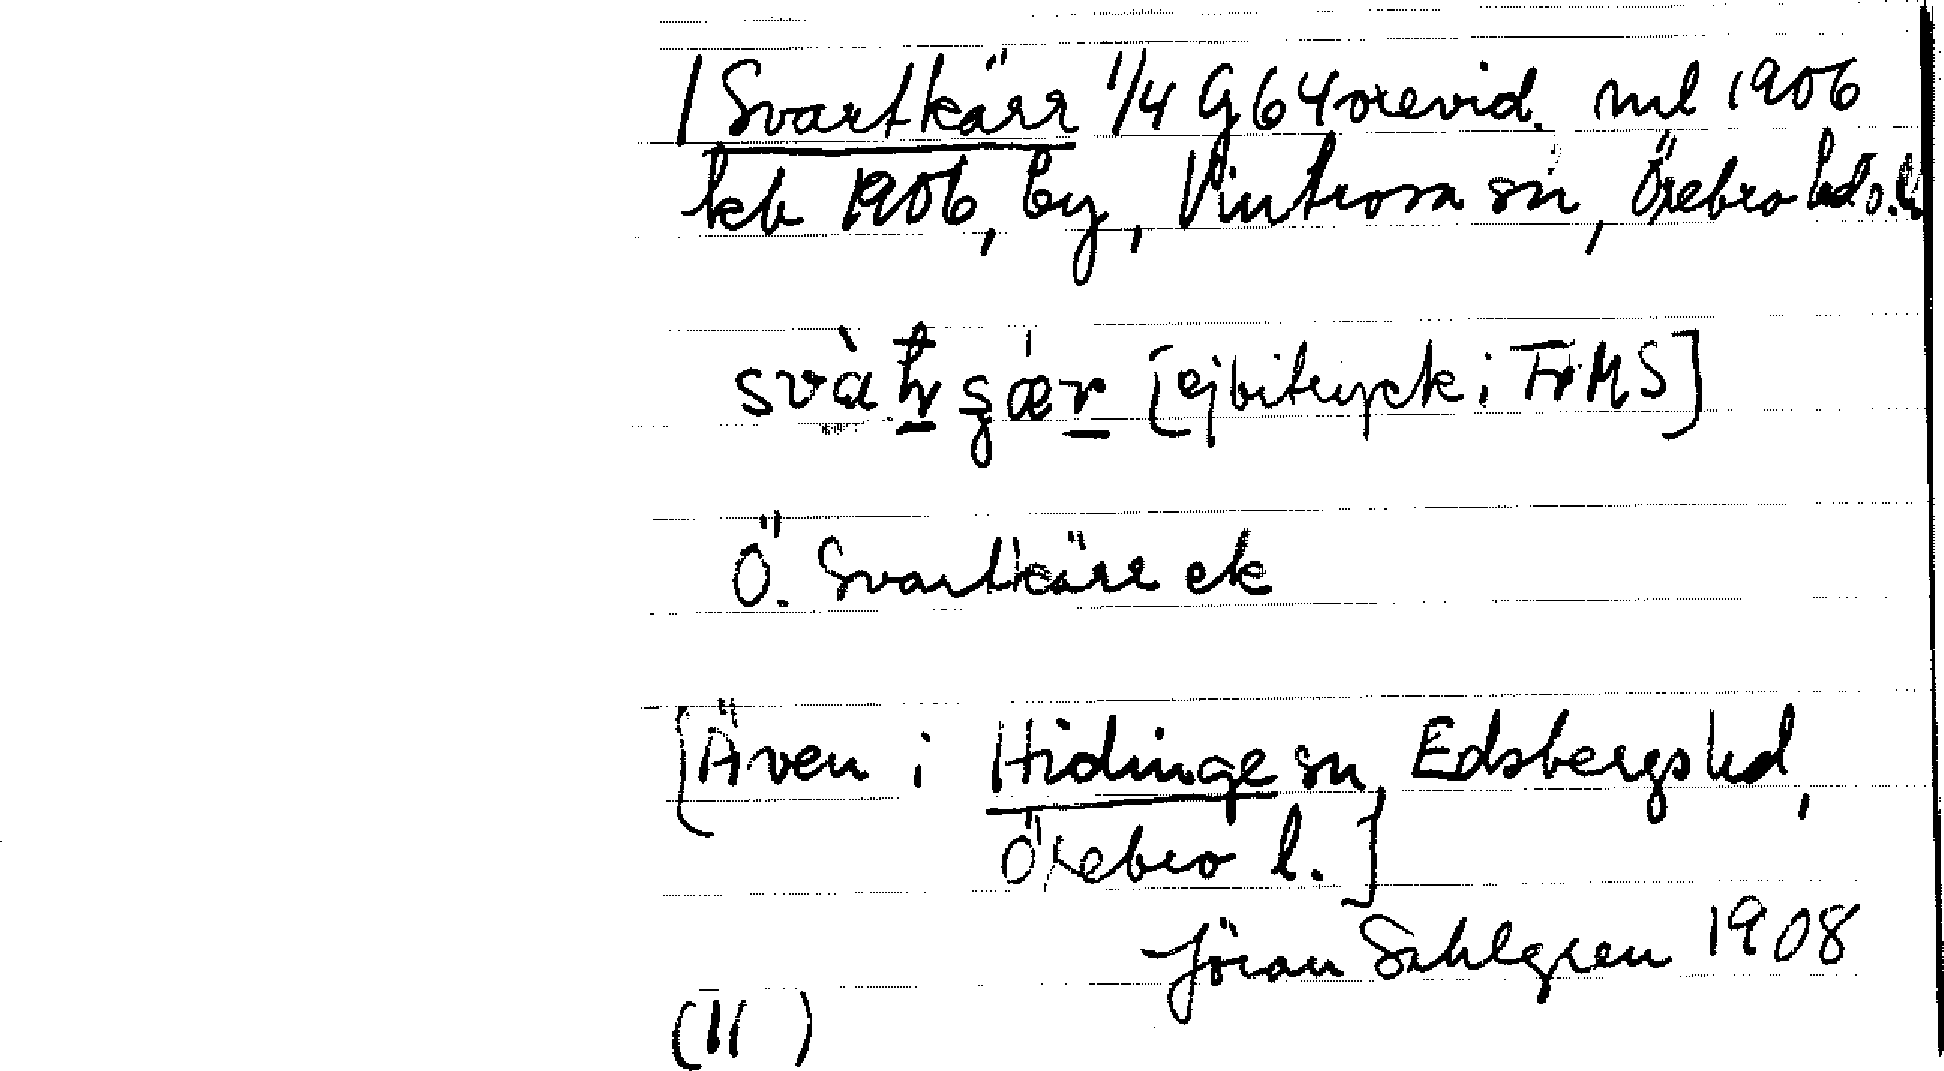 Svartkärr 1/4 G64 orevid. ml 1906
kb 1906, by, Vintrosa sn, Örebro hd o. l.
[ej bitryck i FrMS]
Ö. Svartkärr ek
[Även i Hidinge sn, Edsbergs hd,
Örebro l.]
Jöran Sahlgren 1908
(11)